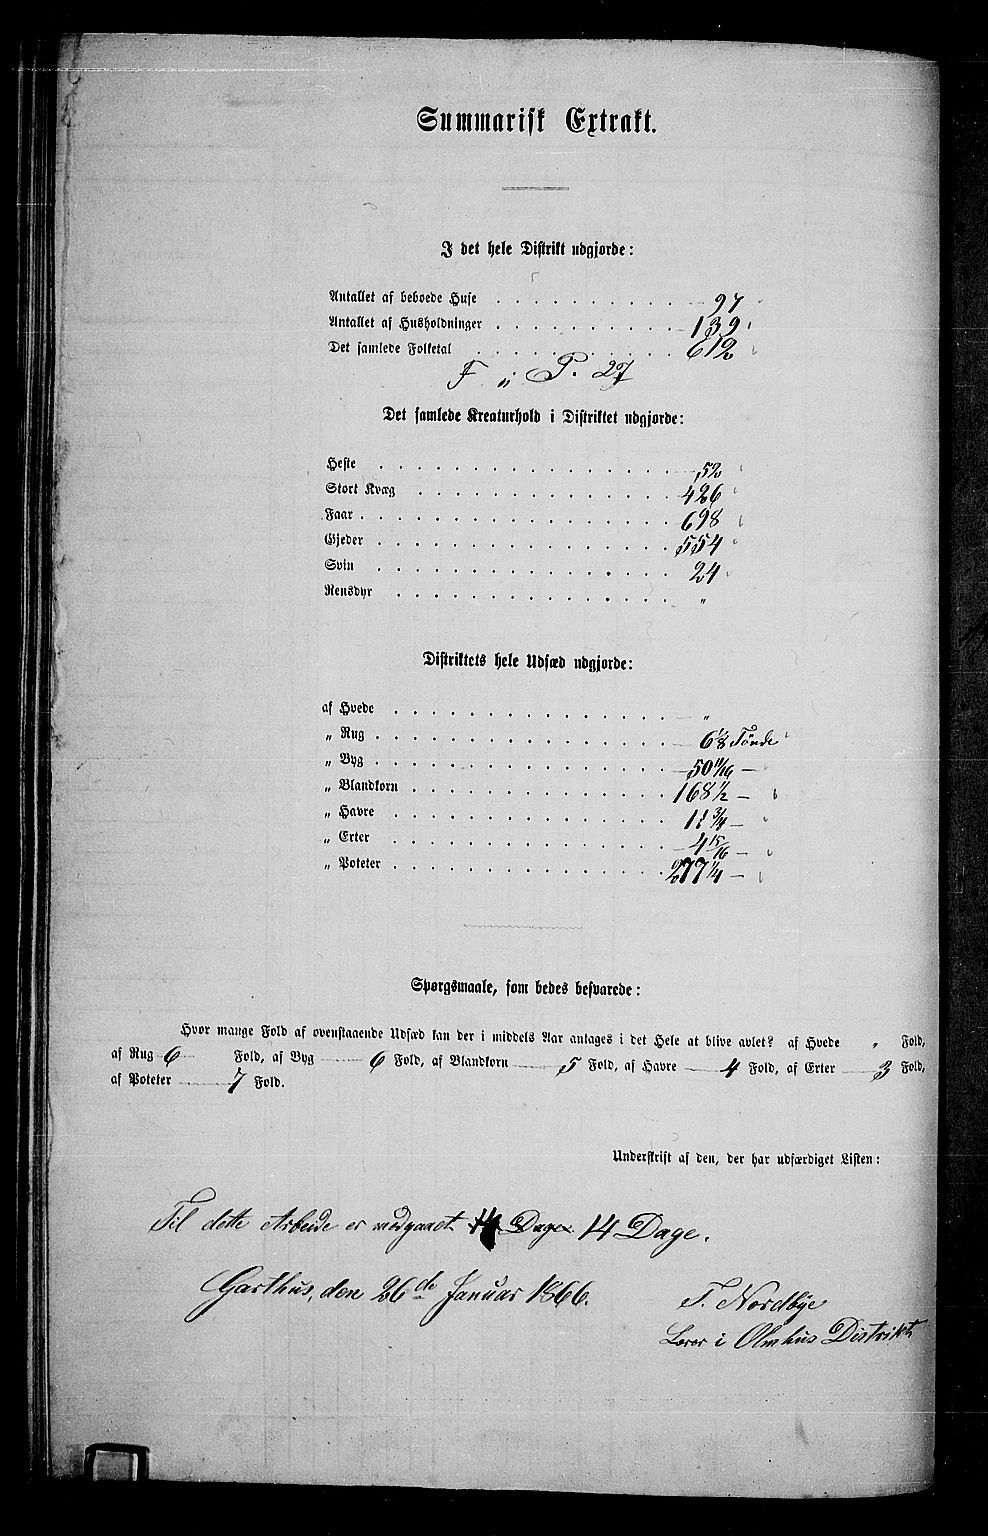 Summarisk Extrakt.
I det hele Distrikt udgjorde:
Antallet af beboede Huse . . . . . . . . . . 97
Antallet af Husholdninger . . . . . . . . . . 139
Det samlede Folketal . . . . . . . . . . 612
F „ P. 27
Det samlede Kreaturhold i Distriktet udgjorde:
Heste . . . . . . . . . . 52
Stort Kvæg . . . . . . . . . . 426
Faar . . . . . . . . . . 698
Gjeder . . . . . . . . . . 554
Svin . . . . . . . . . . 24
Rensdyr . . . . . . . . . . „
Distriktets hele Udsæd udgjorde:
af Hvede . . . . . . . . . . „
„ Rug . . . . . . . . . . 6 1/8 Tönde
„ Byg . . . . . . . . . . 50 11/16 —
„ Blandkorn . . . . . . . . . . 168 1/2 —
„ Havre . . . . . . . . . . 11 3/4 —
„ Erter . . . . . . . . . . 4 15/16 —
„ Poteter . . . . . . . . . . 277 1/4 —
Spørgsmaale, som bedes besvarede:
Hvor mange Fold af ovenstaaende Udsæd kan der i middels Aar antages i det Hele at blive avlet? af Hvede „ Fold,
af Rug 6 Fold, af Byg 6 Fold, af Blandkorn 5 Fold, af Havre 4 Fold, af Erter 3 Fold,
af Poteter 7 Fold.
Underskrift af den, der har udfærdiget Listen:
Til dette Arbeide er medgaaet Dage 14 Dage.
Garthus, den 26de Januar 1866.
T. Nordbye
Lærer i Olmhus Distrikt